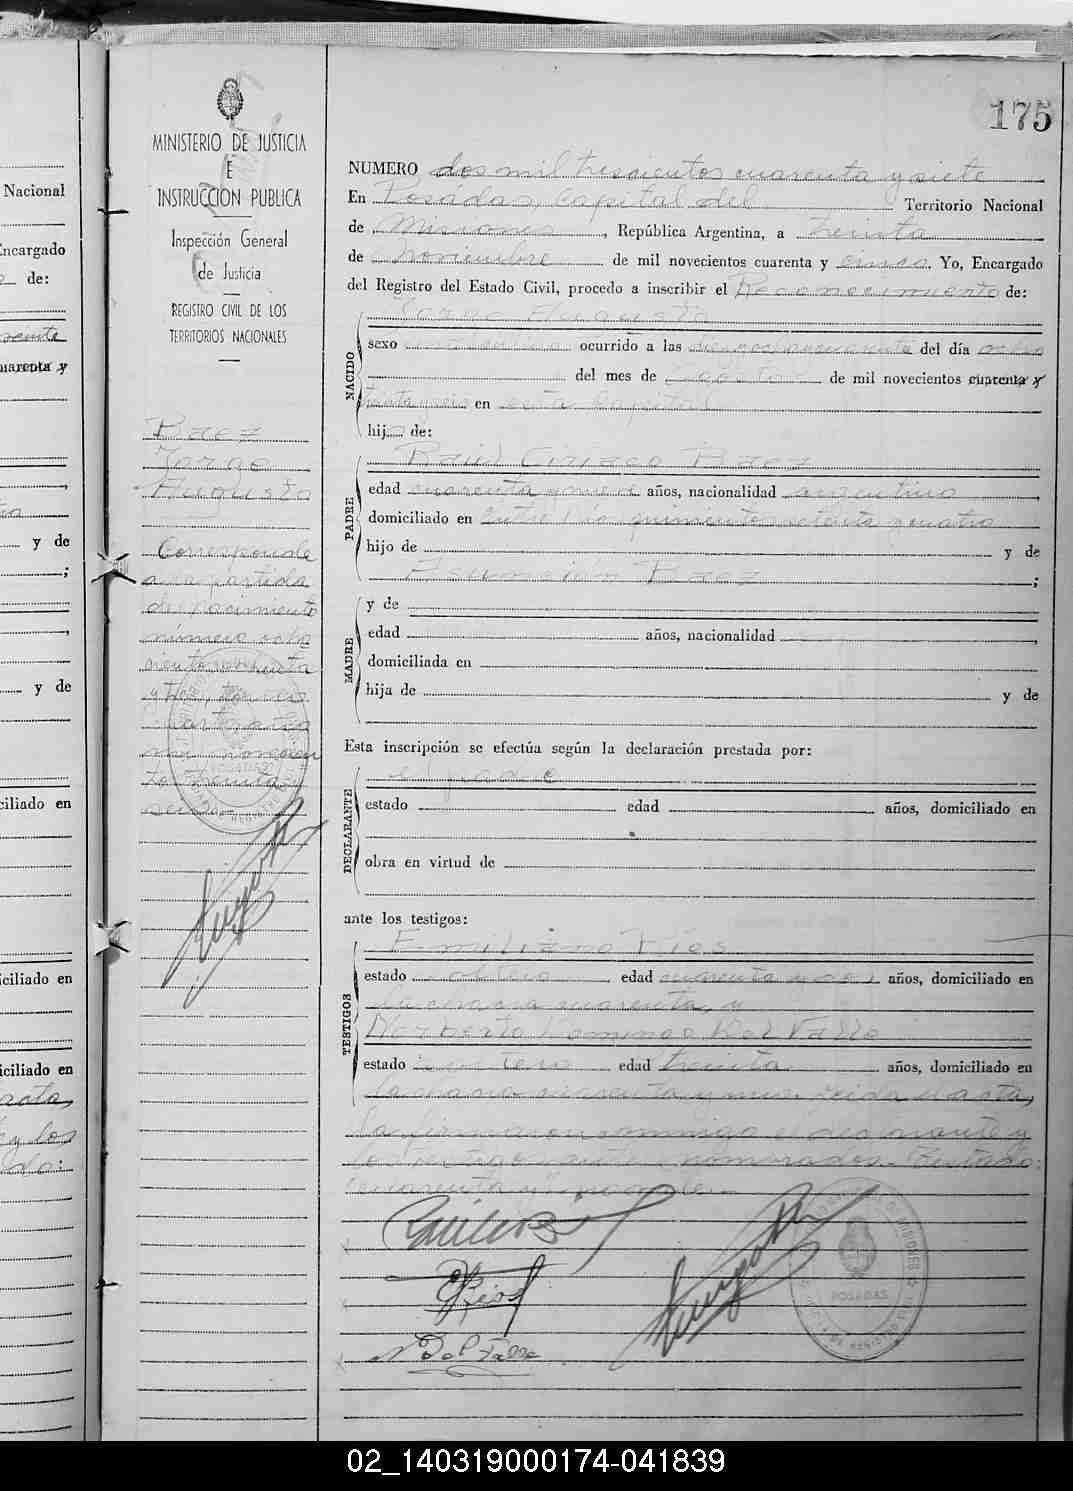 175
MINISTERIO DE JUSTICIA
E
INSTRUCCION PUBLICA
Inspección General
de Justicia
REGISTRO CIVIL DE LOS
TERRITORIOS NACIONALES
Baez
Jorge
Augusto
Corresponde
a la partida
de nacimiento
número ocho
cientos ochenta
y tres, tomo
mil novecien
tos treinta
NUMERO dos mil trescientos cuarenta y siete
En Posadas, Capital del Territorio Nacional
de Misiones, República Argentina, a treinta
de Noviembre de mil novecientos cuarenta y cinco. Yo, Encargado
del Registro del Estado Civil, procedo a inscribir el Reconocimiento de:
Jorge Augusto
NACIDO
sexo masculino ocurrido a las del día ocho
del mes de Agosto de mil novecientos cuarenta y
treinta y seis en esta Capital
hijo de:
PADRE
Raúl Ciriaco Baez
edad cuarenta y nueve años, nacionalidad argentino
domiciliado en Entre Ríos quinientos setenta y cuatro
hijo de y de
Asunción Baez ;
MADRE
y de
edad años, nacionalidad ,
domiciliada en
hija de y de
Esta inscripción se efectúa según la declaración prestada por:
DECLARANTE
el padre
estado edad años, domiciliado en
obra en virtud de
ante los testigos:
TESTIGOS
Emiliano Ríos
estado soltero edad cuarenta y años, domiciliado en
cuarenta, y
Norberto Domingo Del Valle
estado soltero edad treinta años, domiciliado en
La sesenta y nueve. Leída el acta,
la firmaron conmigo el declarante y
los testigos antes nombrados. Testado:
"cuarenta y" no vale.
N Del Valle
POSADAS
Nacional
Encargado
de:
cuarenta y
y de
;
,
y de
ciliado en
ciliado en
ciliado en
acta,
y los
do:
02_140319000174-041839